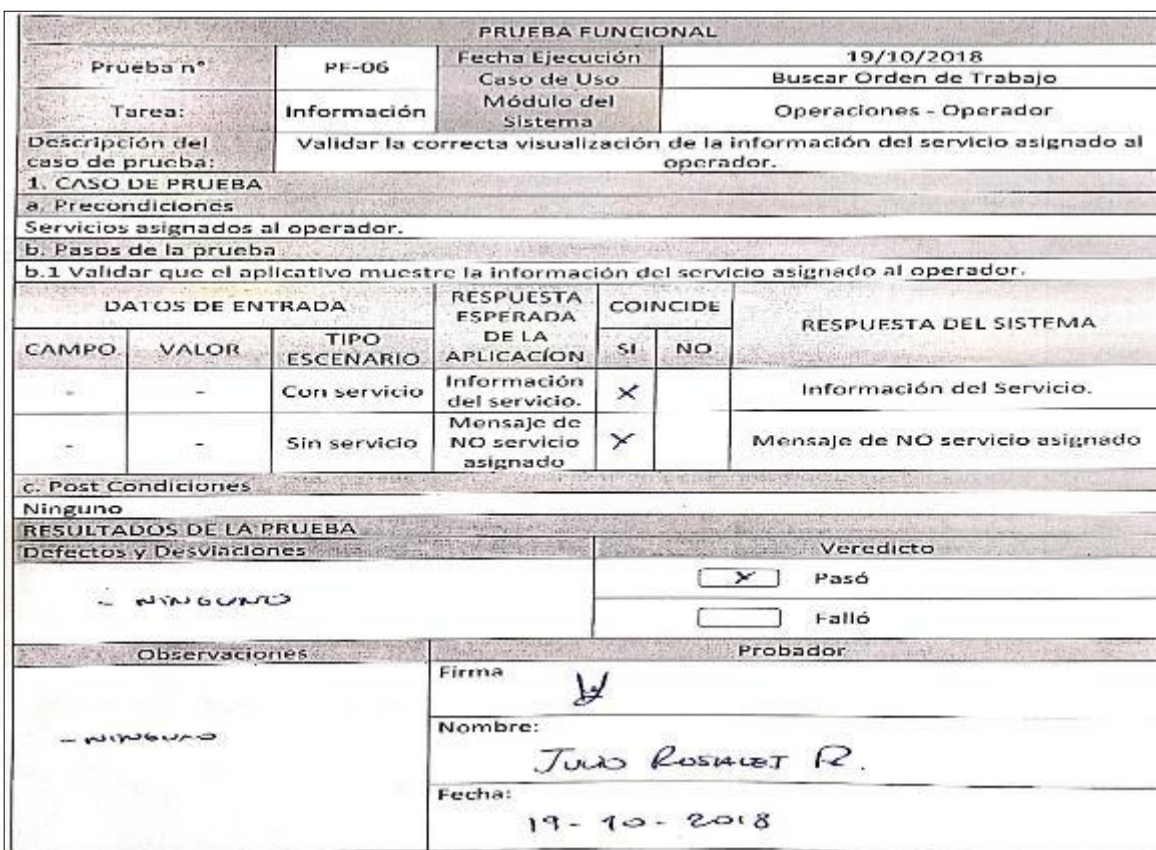 PRUEBA FUNCIONAL
Prueba n° PF-06 Fecha Ejecución 19/10/2018
Caso de Uso Buscar Orden de Trabajo
Tarea: Información Módulo del Sistema Operaciones - Operador
Descripción del caso de prueba: Validar la correcta visualización de la información del servicio asignado al operador.
1. CASO DE PRUEBA
a. Precondiciones
Servicios asignados al operador.
b. Pasos de la prueba
b.1 Validar que el aplicativo muestre la información del servicio asignado al operador.
DATOS DE ENTRADA RESPUESTA ESPERADA DE LA APLICACÍON COINCIDE RESPUESTA DEL SISTEMA
CAMPO VALOR TIPO ESCENARIO SI NO
- - Con servicio Información del servicio. X Información del Servicio.
- - Sin servicio Mensaje de NO servicio asignado X Mensaje de NO servicio asignado
c. Post Condiciones
Ninguno
RESULTADOS DE LA PRUEBA
Defectos y Desviaciones Veredicto
- NINGUNO
X Pasó
Falló
Observaciones Probador
- NINGUNO
Firma
Nombre:
JULIO R.
Fecha:
19-10-2018